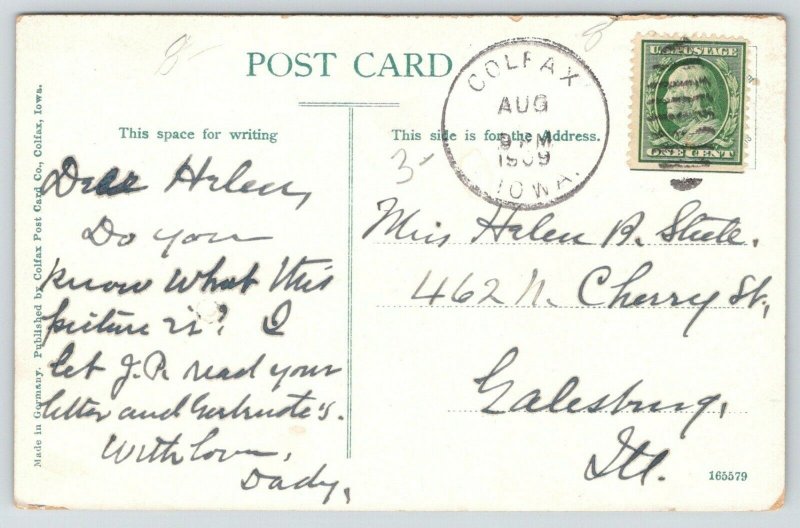 POST CARD
This space for writing
This side is for the Address.
COLFAX
AUG
1909
IOWA.
U.S. POSTAGE
ONE CENT
Made in Germany. Published by Colfax Post Card Co., Colfax, Iowa.
Dear Helen,
Do you
know what this
picture is? I
let J.P. read your
letter and Gertrude's.
With love,
Dady,
3-
Miss Helen R. Steele.
462 N. Cherry St,
Galesburg,
Ill.
165579